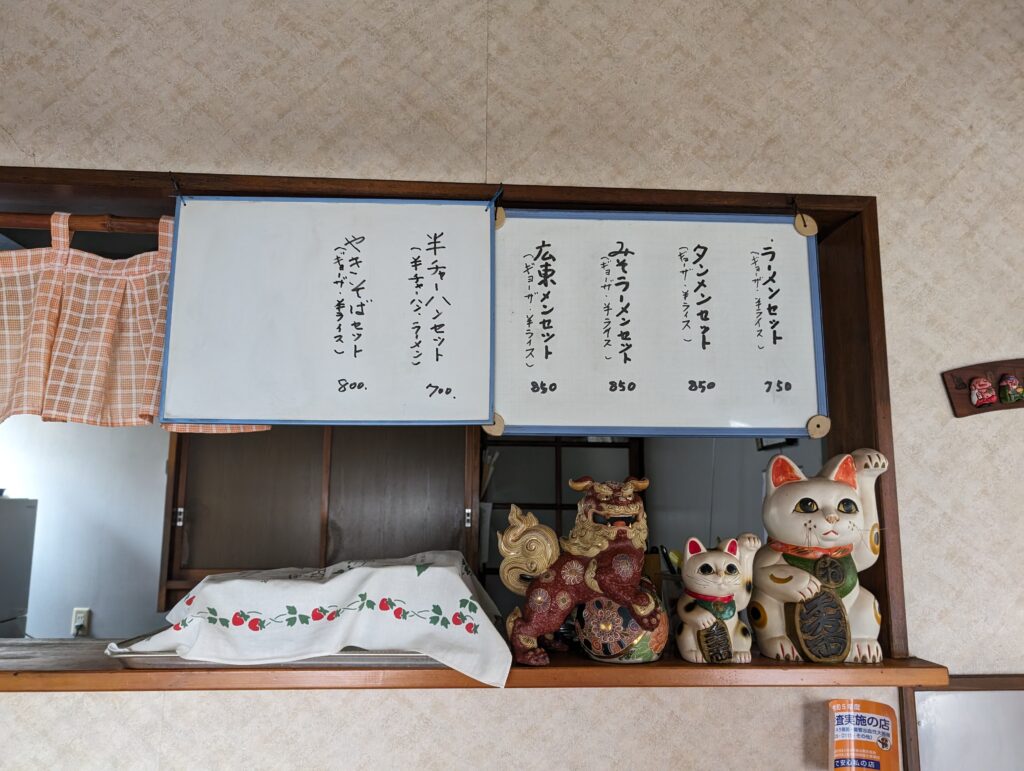 ラーメンセット
(ギョーザ・半ライス)
750
タンメンセット
(ギョーザ・半ライス)
850
みそラーメンセット
(ギョーザ・半ライス)
850
広東メンセット
(ギョーザ・半ライス)
850
半チャーハンセット
(半チャーハン・ラーメン)
700.
やきそばセット
(ギョーザ・半ライス)
800.
5年度
査実施の店
安心私の店